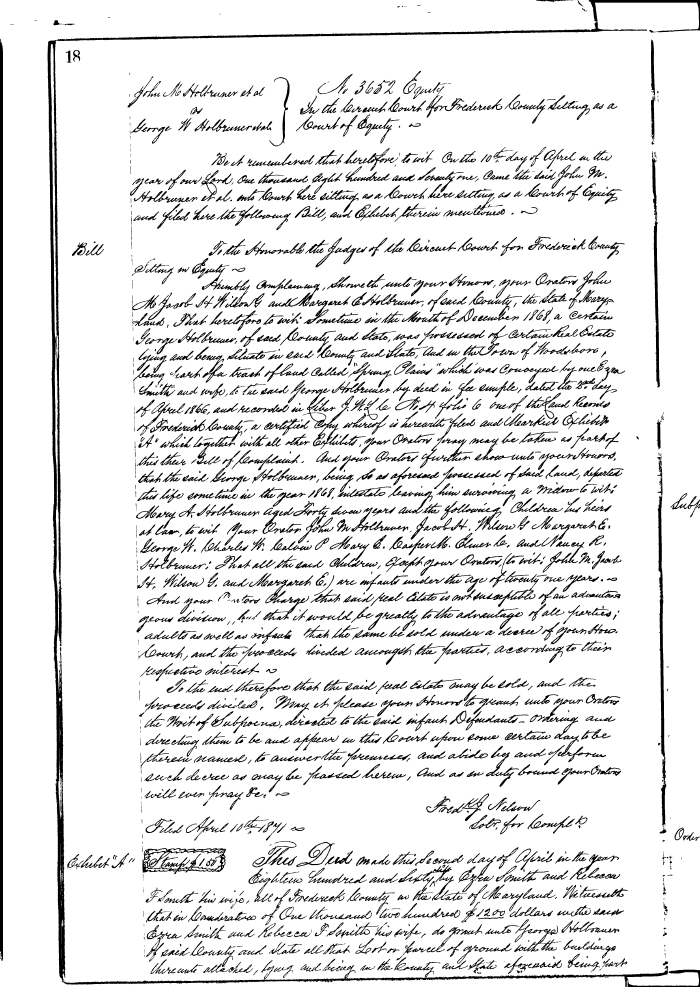 18
John M Holbruner et al
vs
George W Holbruner et als
No 3652 Equity
In the Circuit Court for Frederick County Sitting as a
Court of Equity.
Be it remembered that heretofore to wit On the 10th day of April in the
year of our Lord, One thousand eight hundred and seventy one, Came the said John M.
Holbruner et al. into Court here sitting as a Court here sitting, as a Court of Equity
and filed here the following Bill, and Exhibit, therein mentioned.
Bill
To the Honorable the Judges of the Circuit Court for Frederick County
Sitting in Equity
Humbly Complaining, Sheweth unto your Honors, your Orators John
M. Jacob H. Wilson G. and Margaret E. Holbruner, of said County, the State of Mary-
land, That heretofore to wit: Sometime in the Month of December 1868, a certain
George Holbruner, of said County and State, was possessed of certain Real Estate
lying and being, Situate in said County and State, and in the Town of Woodsboro,
being part of a tract of land called "Spring Plains" which was conveyed by one Ezra
Smith and wife, to the said George Holbruner by deed in fee simple, dated the 2nd day
of April 1866, and recorded in Liber J.W.L.C. No 4 folio 6 one of the Land Records
of Frederick County, a certified copy whereof is herewith filed and Marked Exhibit
"A" which together with all other Exhibits, your Orators pray may be taken as part of
this their Bill of Complaint. And your Orators further show unto your Honors,
that the said George Holbruner, being so as aforesaid possessed of said land, departed
this life sometime in the year 1868, intestate leaving him surviving, a Widow to wit:
Mary A. Holbruner aged Forty seven years and the following Children his heirs
at law, to wit Your Orators John M Holbruner, Jacob H. Wilson G. Margaret E.
George W. Charles W. Calvin P. Mary E. Casper M. Elmer C. and Nancy R.
Holbruner; That all the said Children, except your Orators, (to wit: John M, Jacob
H. Wilson G. and Margaret E.) are infants under the age of twenty one years.
And your Orators Charge, that said real Estate is not susceptible of an advanta-
geous division, but that it would be greatly to the advantage of all parties;
adults as well as infants that the same be sold under a decree of your Hon.
Court, and the proceeds divided amongst the parties, according to their
respective interest
To the end therefore that the said real Estate may be sold, and the
proceeds divided. May it please your Honors to grant unto your Orators
the Writ of Subpoena, directed to the said infant Defendants - ordering and
directing them to be and appear in this Court upon some certain day to be
therein named, to answer the premises, and abide by and perform
such decree as may be passed herein, And as in duty bound your Orators
will ever pray &c.
Fredk J Nelson
Solr. for Complts
Filed April 10th 1871
Exhibit "A"
Stamp $1.50
This Deed made this Second day of April in the year
Eighteen hundred and Sixty by Ezra Smith and Rebecca
F Smith his wife, all of Frederick County in the State of Maryland. Witnesseth
that in Consideration of One thousand two hundred $1200 dollars in the said
Ezra Smith and Rebecca F. Smith his wife, do grant unto George Holbruner
of said County and State all that Lot or parcel of ground with the buildings
thereunto attached, lying and being in the County and State aforesaid being part
Subp
Order